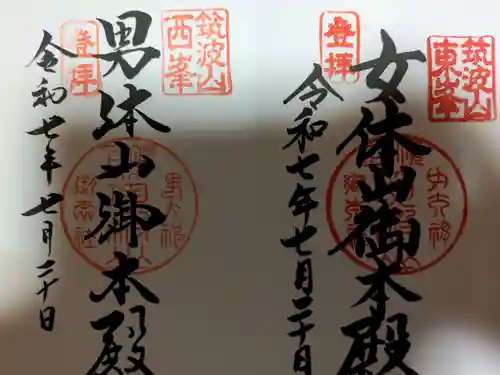 筑波山
東峯
登拝
女体山御本殿
令和七年七月二十日
筑波山
西峯
登拝
男体山御本殿
令和七年七月二十日